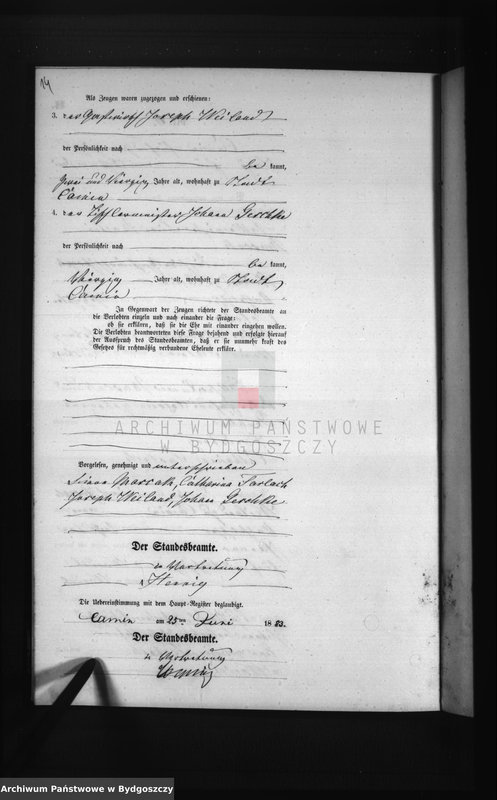 Als Zeugen waren zugezogen und erschienen:
3. der Gastwirth Joseph Weiland
der Persönlichkeit nach
be kannt,
zwei und vierzig Jahre alt, wohnhaft zu Stadt
Camin
4. der Tischlermeister Johann Geschke
der Persönlichkeit nach
be kannt,
vierzig Jahre alt, wohnhaft zu Stadt
Camin
In Gegenwart der Zeugen richtete der Standesbeamte an
die Verlobten einzeln und nach einander die Frage:
ob sie erklären, daß sie die Ehe mit einander eingehen wollen.
Die Verlobten beantworteten diese Frage bejahend und erfolgte hierauf
der Ausspruch des Standesbeamten, daß er sie nunmehr kraft des
Gesetzes für rechtmäßig verbundene Eheleute erkläre.
ARCHIWUM PAŃSTWOWE
W BYDGOSZCZY
Vorgelesen, genehmigt und unterschrieben
Catharina
Joseph Weiland, Johann Geschke
Der Standesbeamte.
in Vertretung
Die Uebereinstimmung mit dem Haupt-Register beglaubigt.
Camin am 25ten Juni 1883.
Der Standesbeamte.
in Vertretung
Archiwum Państwowe w Bydgoszczy